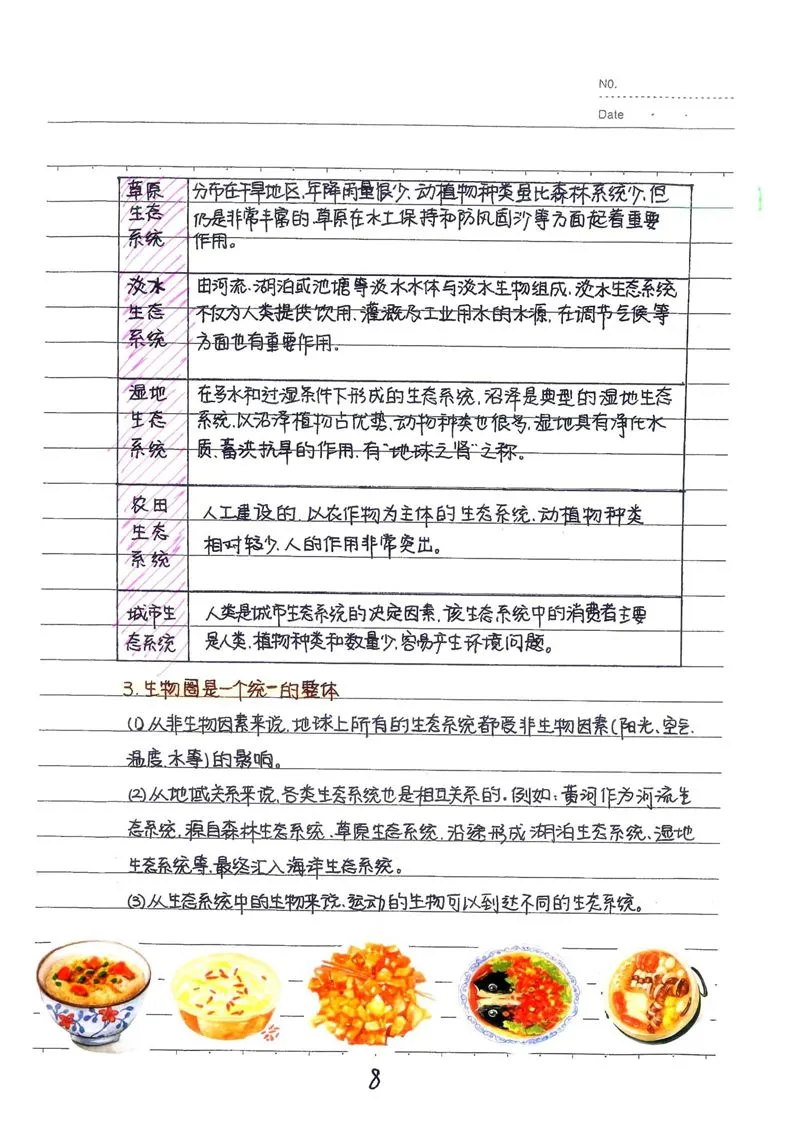 NO.
Date
草原
生态
系统
分布在干旱地区,年降雨量很少,动植物种类虽比森林系统少,但
仍是非常丰富的.草原在水土保持和防风固沙等方面起着重要
作用。
淡水
生态
系统
由河流、湖泊或池塘等淡水水体与淡水生物组成,淡水生态系统
不仅为人类提供饮用、灌溉及工业用水的水源,在调节气候等
方面也有重要作用。
湿地
生态
系统
在多水和过湿条件下形成的生态系统,沼泽是典型的湿地生态
系统,以沼泽植物占优势,动物种类也很多,湿地具有净化水
质、蓄洪抗旱的作用,有"地球之肾"之称。
农田
生态
系统
人工建设的,以农作物为主体的生态系统,动植物种类
相对较少,人的作用非常突出。
城市生
态系统
人类是城市生态系统的决定因素,该生态系统中的消费者主要
是人类,植物种类和数量少,容易产生环境问题。
3.生物圈是一个统一的整体
(1)从非生物因素来说,地球上所有的生态系统都受非生物因素(阳光、空气、
温度、水等)的影响。
(2)从地域关系来说,各类生态系统也是相互关系的。例如:黄河作为河流生
态系统,源自森林生态系统、草原生态系统,沿途形成湖泊生态系统、湿地
生态系统等,最终汇入海洋生态系统。
(3)从生态系统中的生物来说,运动的生物可以到达不同的生态系统。
8